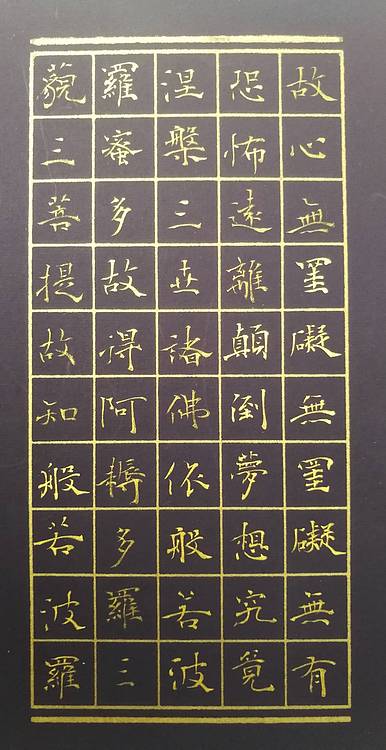 故心無罣礙無罣礙無有
恐怖遠離顛倒夢想究竟
涅槃三世諸佛依般若波
羅蜜多故得阿耨多羅三
藐三菩提故知般若波羅